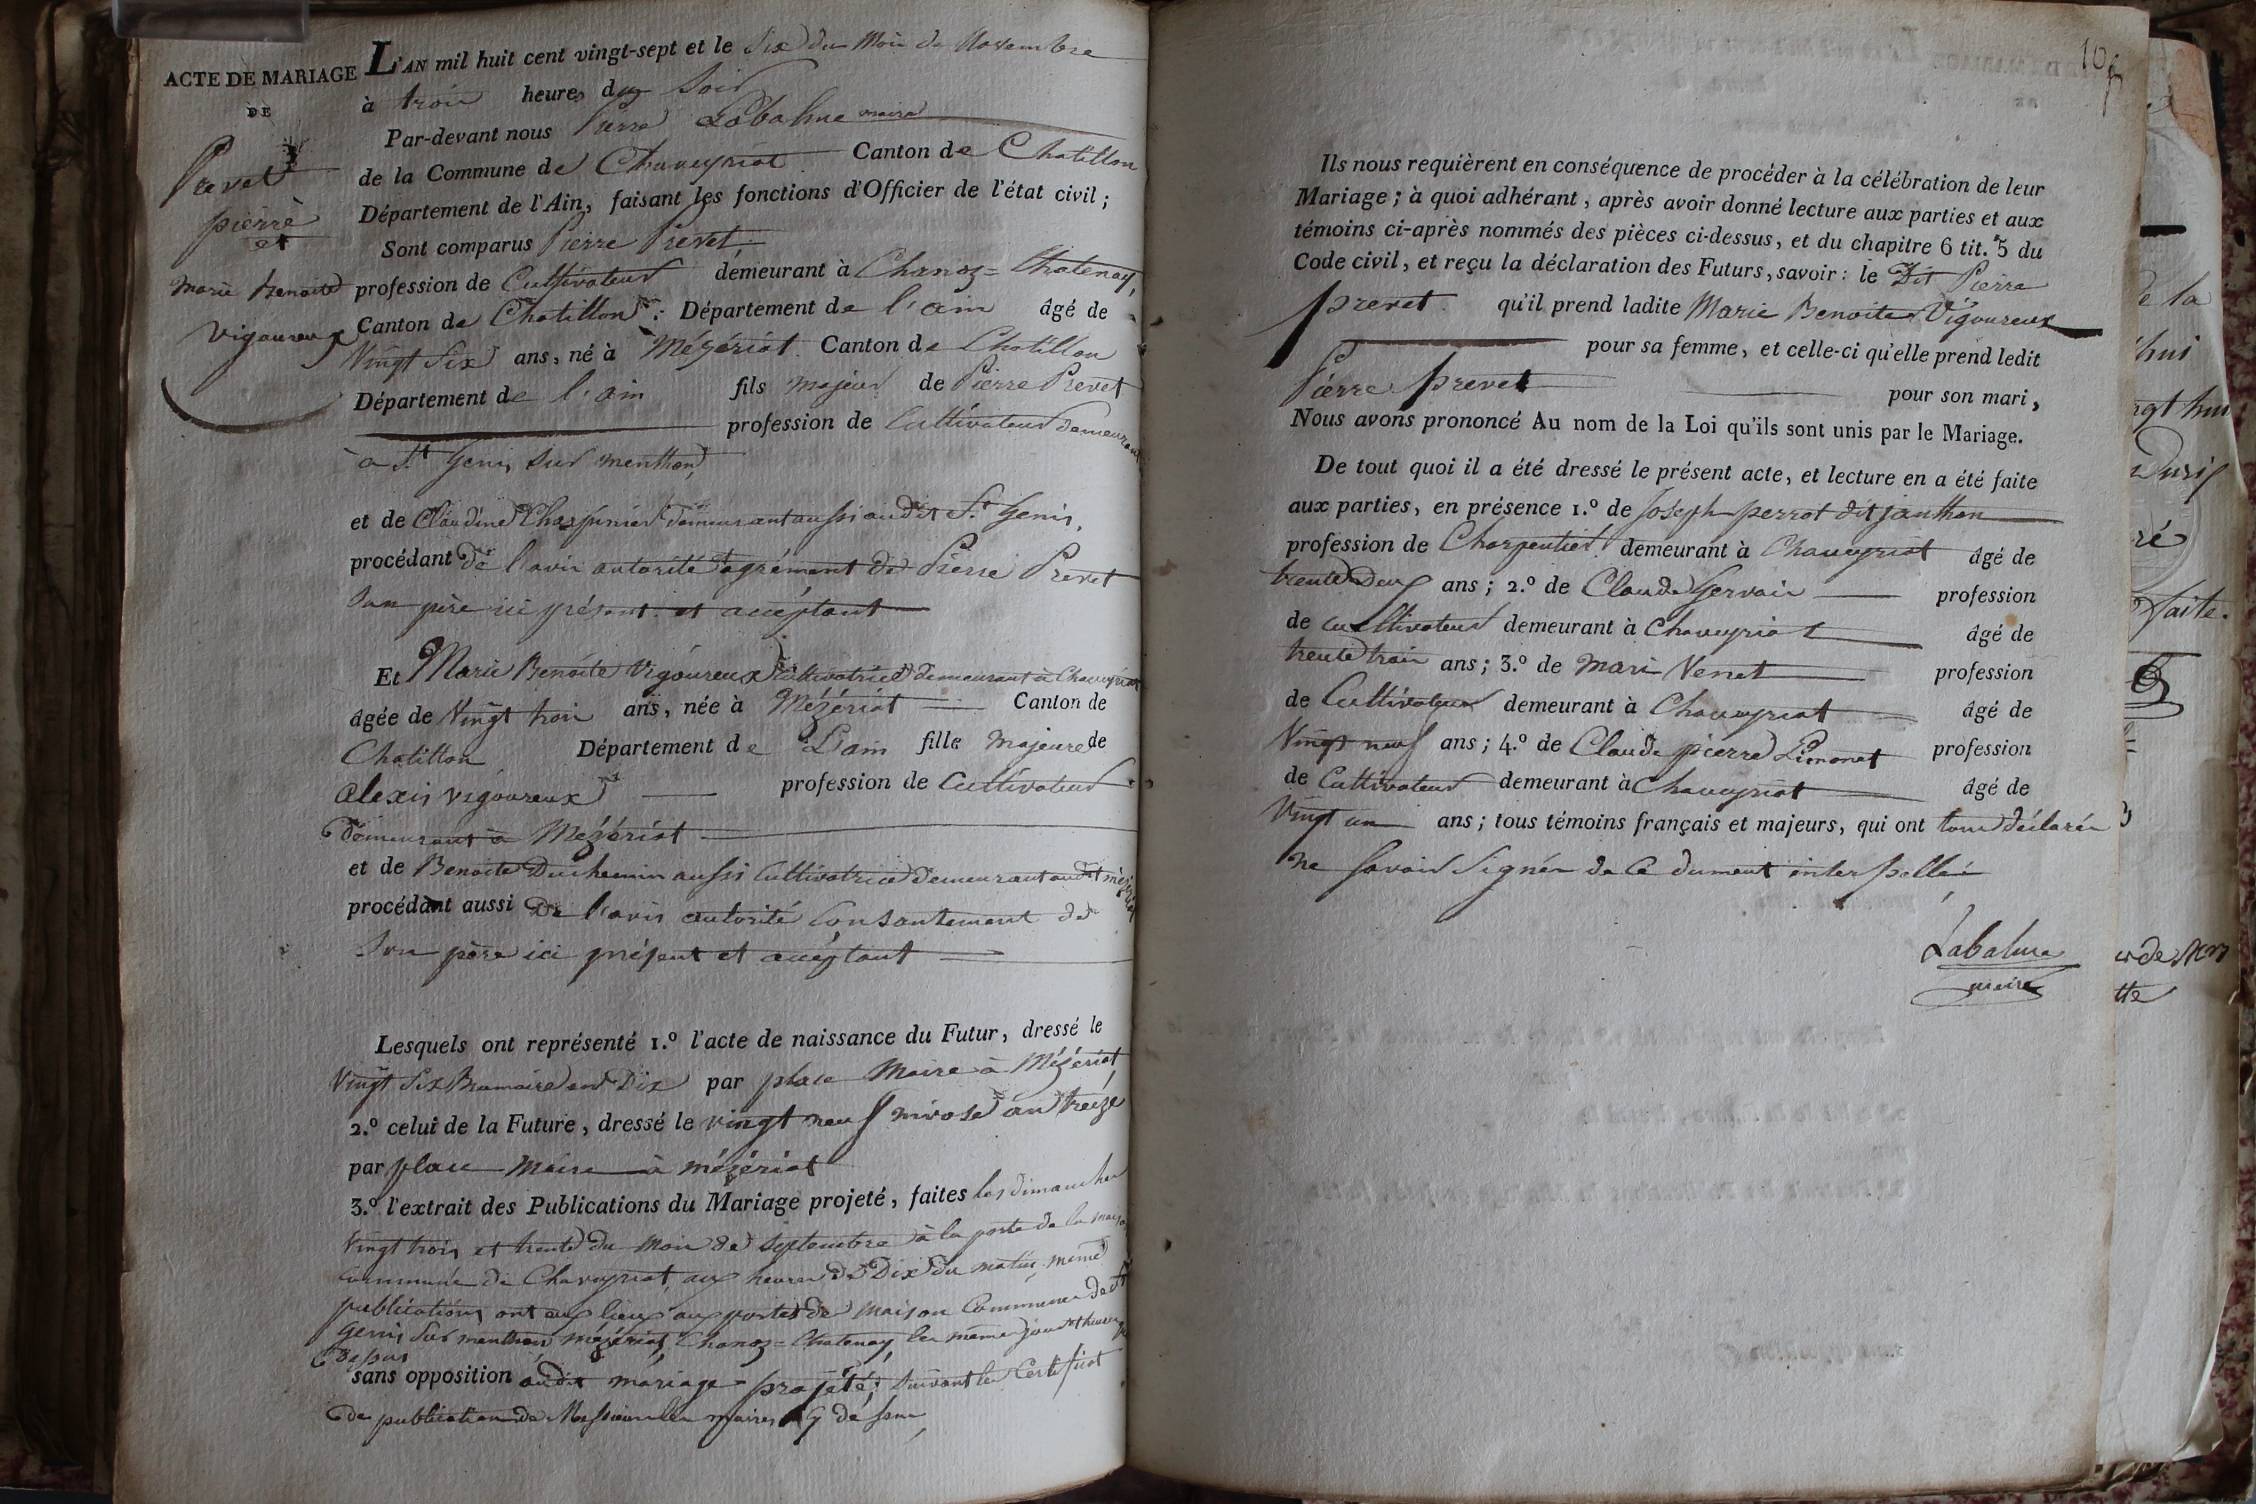 ACTE DE MARIAGE
DE
Prevet
pierre
et
marie Benoite
Vigoureux
L'AN mil huit cent vingt-sept et le Six du Mois de Novembre
à trois heures du Soir
Par-devant nous Pierre Labalme maire
de la Commune de Chaveyriat Canton de Chatillon
Département de l'Ain, faisant les fonctions d'Officier de l'état civil ;
Sont comparus Pierre Prevet
profession de Cultivateur demeurant à Chanoz=Chatenay,
Canton de Chatillon Département de l'ain âgé de
Vingt Six ans, né à Mézériat Canton de Chatillon
Département de l'ain fils majeur de Pierre Prevet
profession de Cultivateur demeurant
à St. Genis sur menthon
et de Claudine demeurant aussi audit St. Genis,
procédant de l'avis autorité agrément de Pierre Prevet
Son père ici présent et acceptant
Et Marie Benoite Vigoureux Cultivatrice demeurant à Chaveyriat
âgée de Vingt trois ans, née à Mézériat Canton de
Chatillon Département de L'ain fille majeure de
alexis vigoureux profession de Cultivateur
demeurant à Mézériat
et de Benoite Duchemin aussi Cultivatrice demeurant audit mézériat
procédant aussi De l'avis autorité Consantement de
Son père ici présent et acceptant
Lesquels ont représenté 1.º l'acte de naissance du Futur, dressé le
Vingt Six Brumaire an Dix par place Maire à Mézériat
2.º celui de la Future, dressé le vingt neuf nivose an treize
par place Maire à mézériat
3.º l'extrait des Publications du Mariage projeté, faites les dimanches
Vingt trois et trente du Mois de septembre à la porte de la maison
Commune de Chaveyriat aux heures de Dix du matin même
publications ont eu lieux aux portes de maison Commune de St
Genis Sur menthon mézériat, Chanoz=Chatenay, les même jour et heure que
Dessus
sans opposition audit mariage projeté, Suivant les Certificat
de publication de Messieurs les maires
10
Ils nous requièrent en conséquence de procéder à la célébration de leur
Mariage ; à quoi adhérant, après avoir donné lecture aux parties et aux
témoins ci-après nommés des pièces ci-dessus, et du chapitre 6 tit. 5 du
Code civil, et reçu la déclaration des Futurs, savoir : le Dit Pierre
prevet qu'il prend ladite Marie Benoite Vigoureux
pour sa femme, et celle-ci qu'elle prend ledit
Pierre prevet pour son mari,
Nous avons prononcé Au nom de la Loi qu'ils sont unis par le Mariage.
De tout quoi il a été dressé le présent acte, et lecture en a été faite
aux parties, en présence 1.º de Joseph perrot dit janthon
profession de Charpentier demeurant à Chaveyriat âgé de
trente deux ans ; 2.º de Claude Gervais profession
de cultivateur demeurant à Chaveyriat âgé de
trente trois ans ; 3.º de mari Venet profession
de Cultivateur demeurant à Chaveyriat âgé de
Vingt neuf ans ; 4.º de Claude pierre profession
de Cultivateur demeurant à Chaveyriat âgé de
Vingt un ans ; tous témoins français et majeurs, qui ont tous déclarés
ne savoir Signér de Ce dument interpellé
Labalme
maire